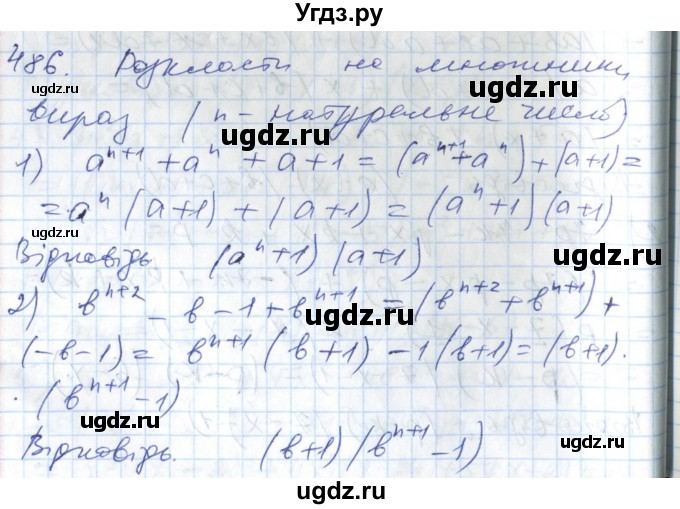 Угдз.ру
486. Розкласти на множники
вираз (n - натуральне число)
1) a^{n+1} + a^n + a + 1 = (a^{n+1} + a^n) + (a+1) =
= a^n (a+1) + (a+1) = (a^n + 1)(a+1)
Відповідь. (a^n + 1)(a+1)
2) b^{n+2} - b - 1 + b^{n+1} = (b^{n+2} + b^{n+1}) +
(-b-1) = b^{n+1} (b+1) - 1(b+1) = (b+1) ·
· (b^{n+1} - 1)
Відповідь. (b+1)(b^{n+1} - 1)
ugdz.ru
ugdz.ru
ugdz.ru
ugdz.ru
ugdz.ru
ugdz.ru
ugdz.ru
ugdz.ru
ugdz.ru
ugdz.ru